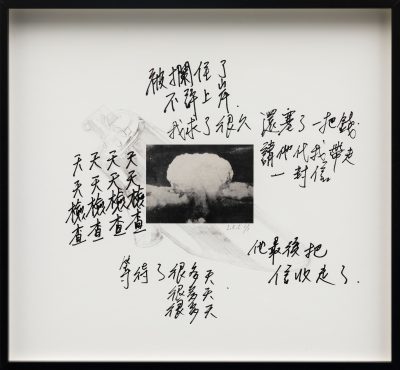 被攔住了
不許上岸.
我求了很久
還塞了一把錢
請他代我帶走
一封信.
他最後把
信收走了.
等待了很多天
很多天
很多天
天天檢查
天天檢查
天天檢查
天天檢查